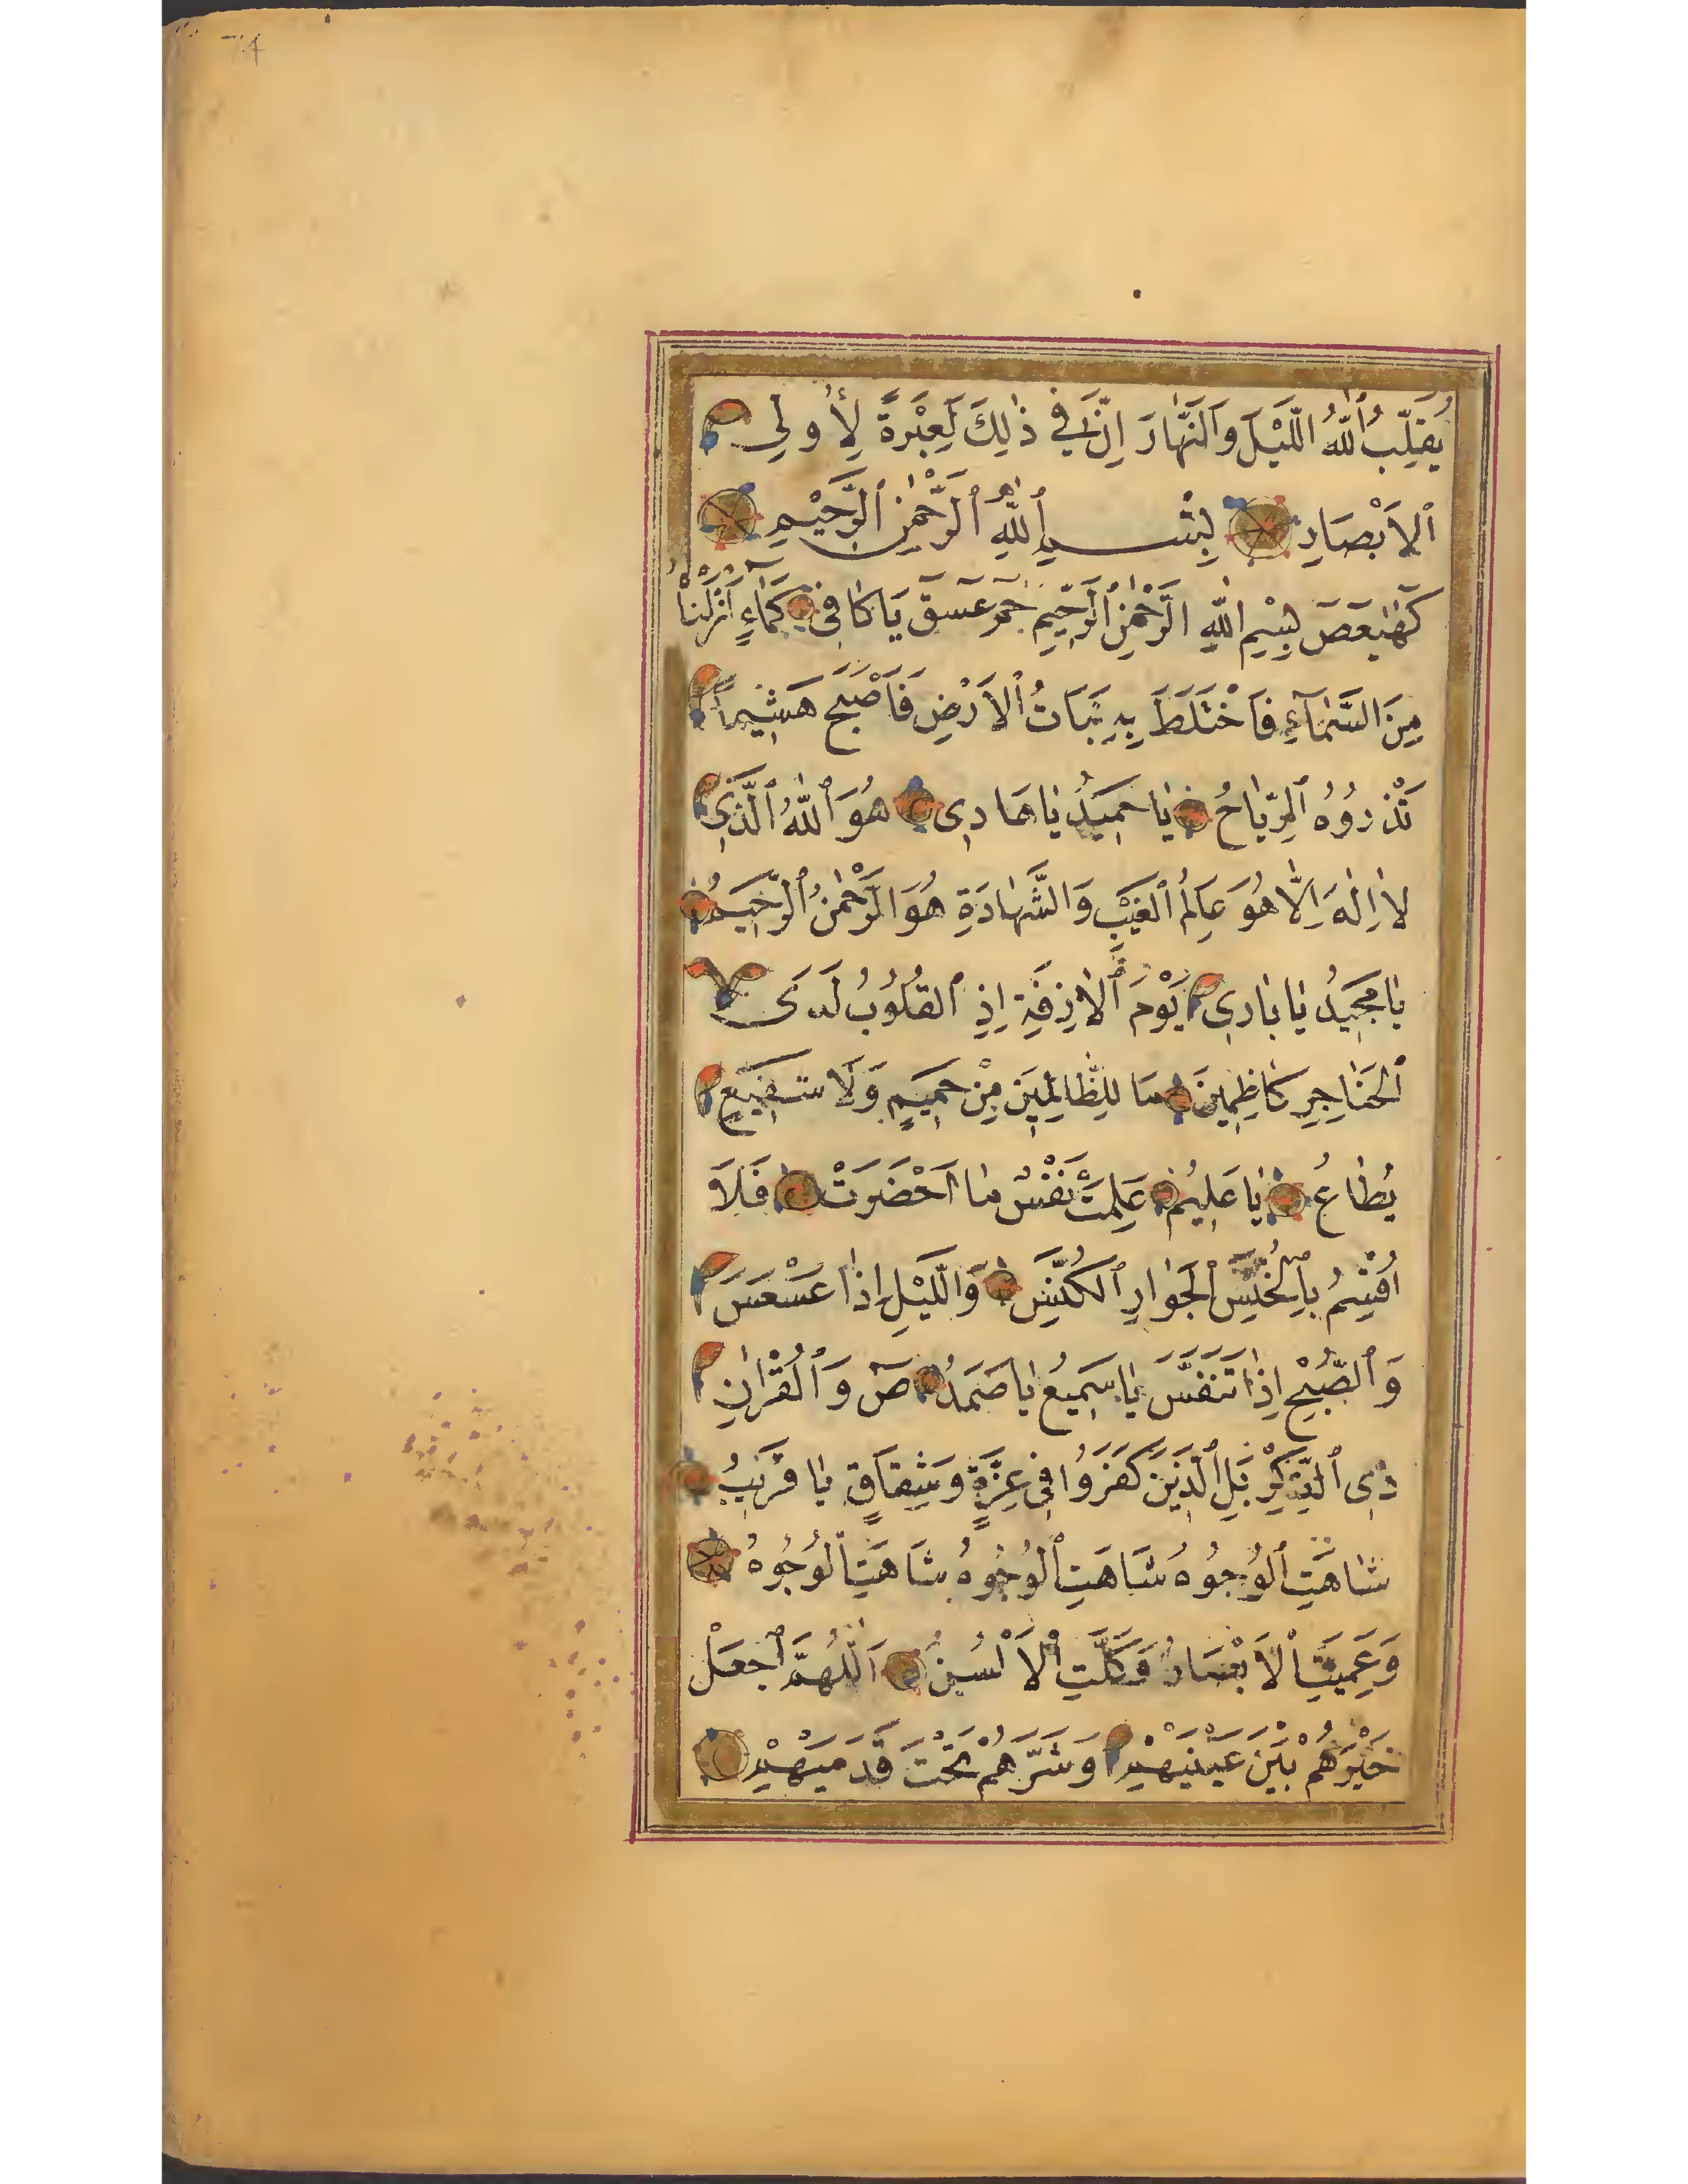 يُقَلِّبُ ٱللّٰهُ الَّليْلَ وَٱلنَّهٰارَ اِنَّ فٖي ذٰلِكَ لَعِبْرَةً لِأُولِى
ٱلاَبْصَارِ بِسْمِ ٱللّٰهِ ٱلرَّحْمٰنِ ٱلرَّحٖيْمِ
كٓهٰيٰعٓصٓ بِسْمِ اللّٰهِ الرَّحْمٰنِ ٱلرَّحٖيمِ حٓمٓ عٓسٓقٓ يَا كَافِى كَمَاءٍ اَنْزَلْنٰاهُ
مِنَ السَّمٰآءِ فَاخْتَلَطَ بِهٖ نَبَاتُ ٱلاَرْضِ فَاَصْبَحَ هَشٖيماً
تَذْرُوُهُ ٱلرِّيٰاحُ يٰا حَمٖيدُ يٰا هَادِى هُوَ ٱللّٰهُ ٱلَّذٖى
لاٰ اِلٰهَ اِلاّٰ هُوَ عَالِمُ ٱلْغَيْبِ وَالشَّهٰادَةِ هُوَ الرَّحْمٰنُ ٱلرَّحٖيمُ
يٰا مَجٖيدُ يٰا بٰارِى يَوْمَ ٱلاٰزِفَةِ اِذِ ٱلقُلُوُبُ لَدَى
ٱلحَنٰاجِرِ كَاظِمٖينَ مَا لِلظّٰالِمٖينَ مِنْ حَمٖيمٍ وَلَا شَفٖيعٍ
يُطٰاعُ يٰا عَلٖيمُ عَلِمَتْ نَفْسٌ مٰا اَحْضَرَتْ فَلَا
اُقْسِمُ بِالْخُنَّسِ ٱلجَوٰارِ ٱلكُنَّسِ وَالَّليْلِ اِذٰا عَسْعَسَ
وَٱلصُّبْحِ اِذٰا تَنَفَّسَ يٰا سَمٖيعُ يٰا صَمَدُ صٓ وَٱلْقُرْاٰنِ
ذِى ٱلذِّكْرِ بَلِ ٱلَّذٖينَ كَفَرُوُا فٖى عِزَّةٍ وَشِقَاقٍ يٰا قَرٖيبُ
شٰاهَتِ ٱلوُجُوُهُ شَاهَتِ ٱلوُجُوُهُ شَاهَتِ ٱلوُجُوُهُ
وَعَمِيَتِ ٱلاَبْصَارُ وَكَلَّتِ ٱلاَلْسُنُ اَللّٰهُمَّ ٱجْعَلْ
خَيْرَهُمْ بَيْنَ عَيْنَيْهِمْ وَشَرَّهُمْ تَحْتَ قَدَمَيْهِمْ